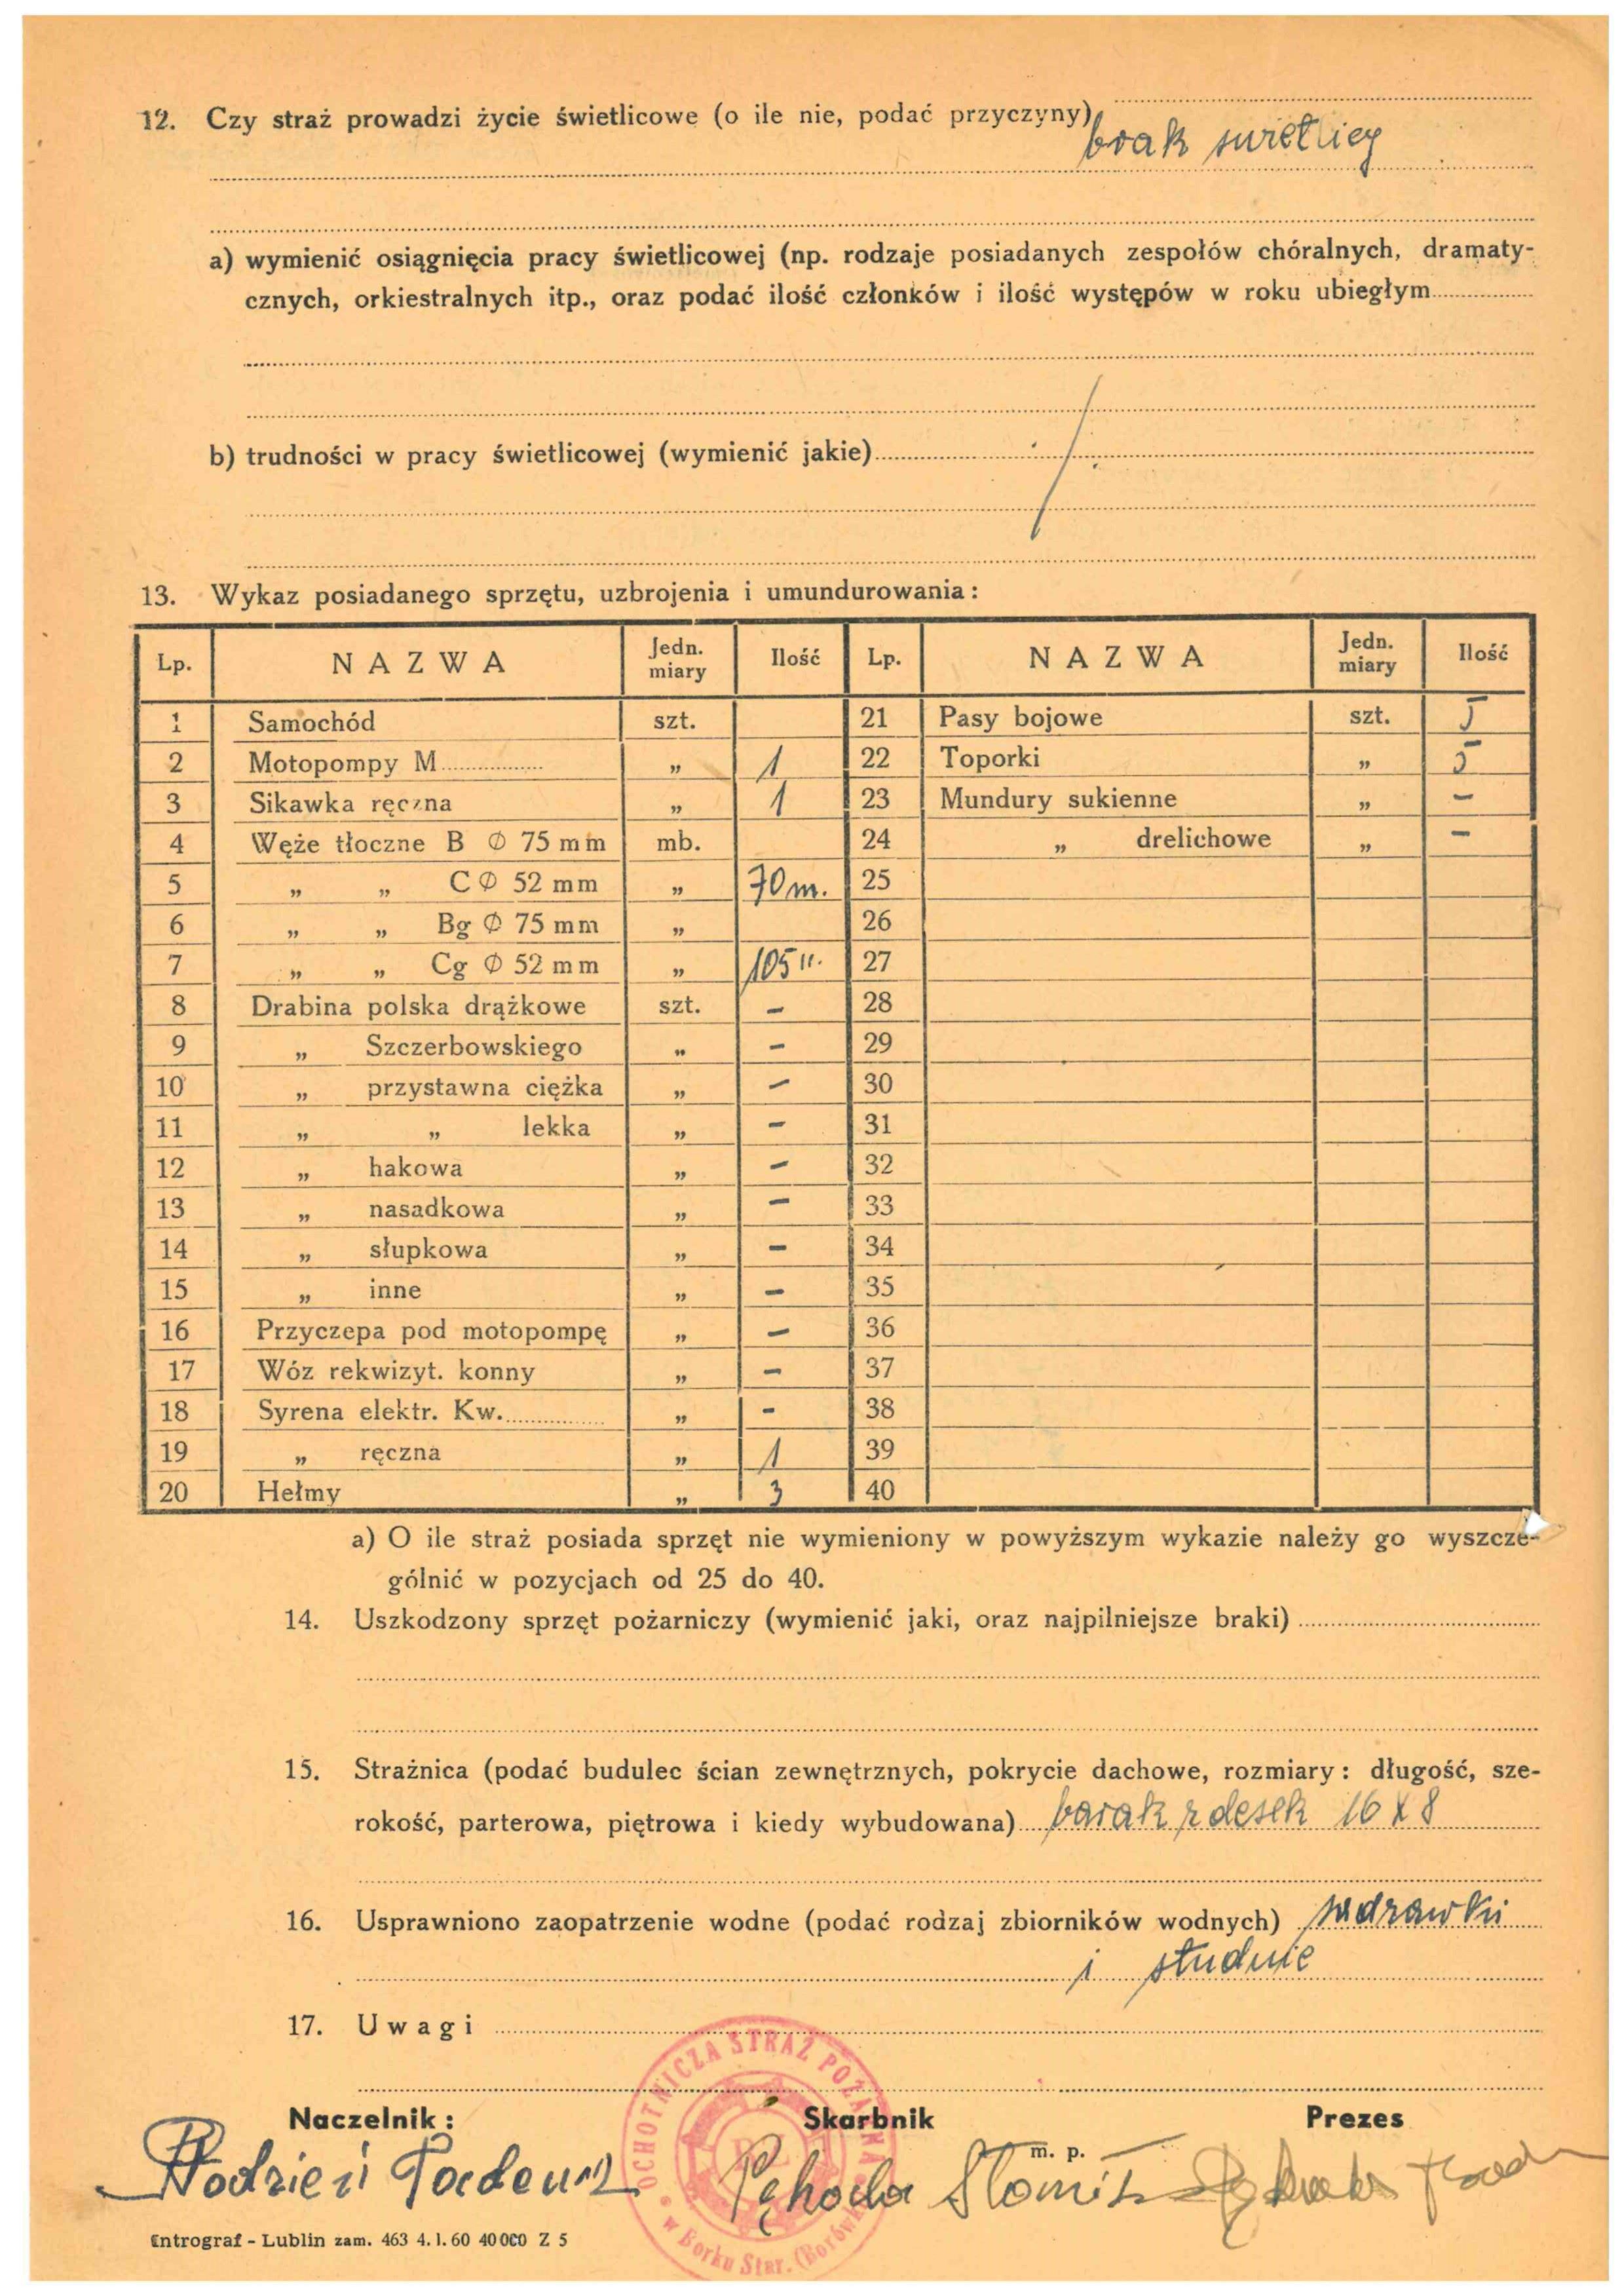 12. Czy straż prowadzi życie świetlicowe (o ile nie, podać przyczyny)
brak swietlicy
a) wymienić osiągnięcia pracy świetlicowej (np. rodzaje posiadanych zespołów chóralnych, dramaty-
cznych, orkiestralnych itp., oraz podać ilość członków i ilość występów w roku ubiegłym
b) trudności w pracy świetlicowej (wymienić jakie)
13. Wykaz posiadanego sprzętu, uzbrojenia i umundurowania :
Lp. NAZWA Jedn. miary Ilość Lp. NAZWA Jedn. miary Ilość
1 Samochód szt. 21 Pasy bojowe szt. 5
2 Motopompy M „ 1 22 Toporki „ 5
3 Sikawka ręczna „ 1 23 Mundury sukienne „ –
4 Węże tłoczne B ∅ 75 mm mb. 24 „ drelichowe „ –
5 „ „ C ∅ 52 mm „ 70 m. 25
6 „ „ Bg ∅ 75 mm „ 26
7 „ „ Cg ∅ 52 mm „ 105 ". 27
8 Drabina polska drążkowe szt. – 28
9 „ Szczerbowskiego „ – 29
10 „ przystawna ciężka „ – 30
11 „ „ lekka „ – 31
12 „ hakowa „ – 32
13 „ nasadkowa „ – 33
14 „ słupkowa „ – 34
15 „ inne „ – 35
16 Przyczepa pod motopompę „ – 36
17 Wóz rekwizyt. konny „ – 37
18 Syrena elektr. Kw. „ – 38
19 „ ręczna „ 1 39
20 Hełmy „ 3 40
a) O ile straż posiada sprzęt nie wymieniony w powyższym wykazie należy go wyszcze-
gólnić w pozycjach od 25 do 40.
14. Uszkodzony sprzęt pożarniczy (wymienić jaki, oraz najpilniejsze braki)
15. Strażnica (podać budulec ścian zewnętrznych, pokrycie dachowe, rozmiary : długość, sze-
rokość, parterowa, piętrowa i kiedy wybudowana) barak z desek 16 x 8
16. Usprawniono zaopatrzenie wodne (podać rodzaj zbiorników wodnych) sadzawki
i studnie
17. Uwagi
OCHOTNICZA STRAŻ POŻARNA
w Borku Star.
Naczelnik : Skarbnik Prezes
m. p.
Tadeusz
Entrograf - Lublin zam. 463 4. I. 60 40 000 Z 5